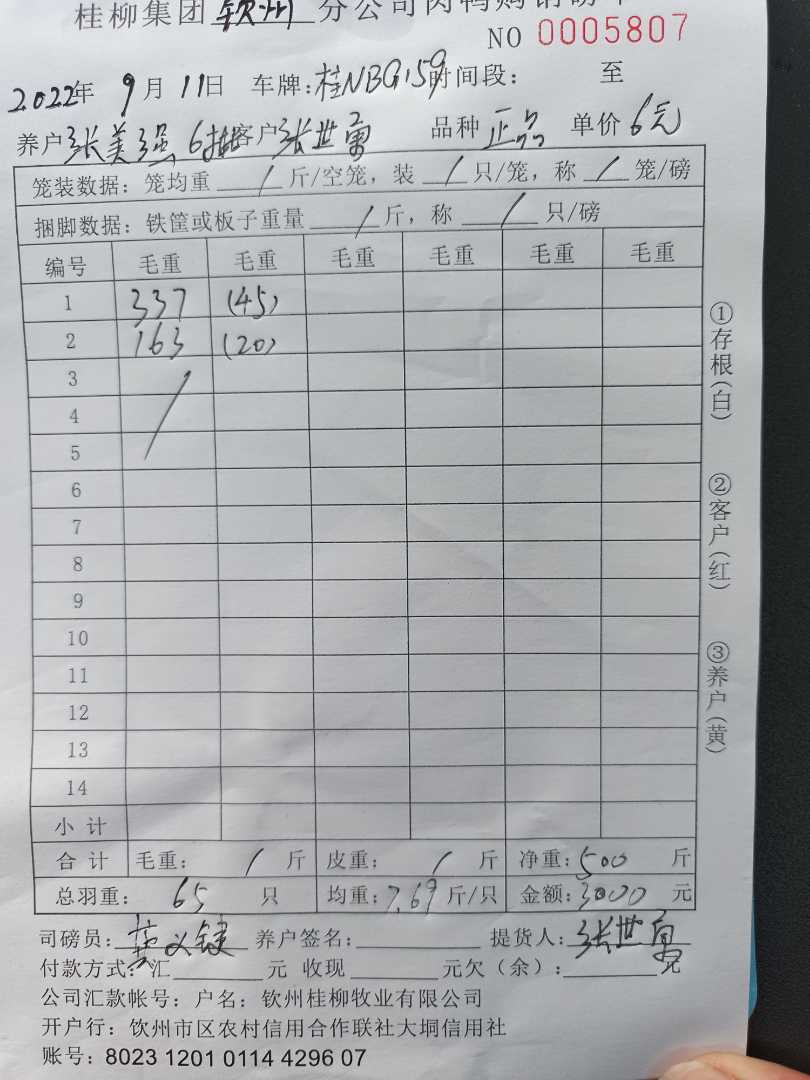 桂柳集团 钦州 分公司肉鸭购销磅单
NO 0005807
2022年 9月 11日 车牌:桂NBG159 时间段: 至
养户 张美强 6批 客户 张世勇 品种 正品 单价 6元
笼装数据: 笼均重 / 斤/空笼, 装 / 只/笼, 称 / 笼/磅
捆脚数据: 铁筐或板子重量 / 斤, 称 / 只/磅
编号 毛重 毛重 毛重 毛重 毛重 毛重
1 337 (45)
2 163 (20)
3 /
4
5
6
7
8
9
10
11
12
13
14
小计
合计 毛重: / 斤 皮重: / 斤 净重: 500 斤
总羽重: 65 只 均重: 7.69 斤/只 金额: 3000 元
司磅员: 义键 养户签名: 提货人: 张世勇
付款方式: 汇 元 收现 元欠(余): 元
公司汇款帐号: 户名: 钦州桂柳牧业有限公司
开户行: 钦州市区农村信用合作联社大垌信用社
账号: 8023 1201 0114 4296 07
①存根(白)
②客户(红)
③养户(黄)